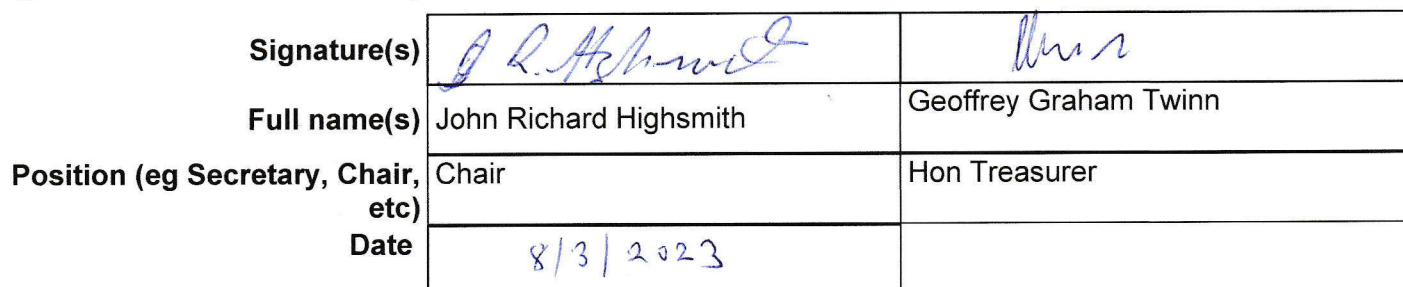 Signature(s)
J R. Highsmith
Full name(s) John Richard Highsmith Geoffrey Graham Twinn
Position (eg Secretary, Chair, etc) Chair Hon Treasurer
Date 8/3/2023